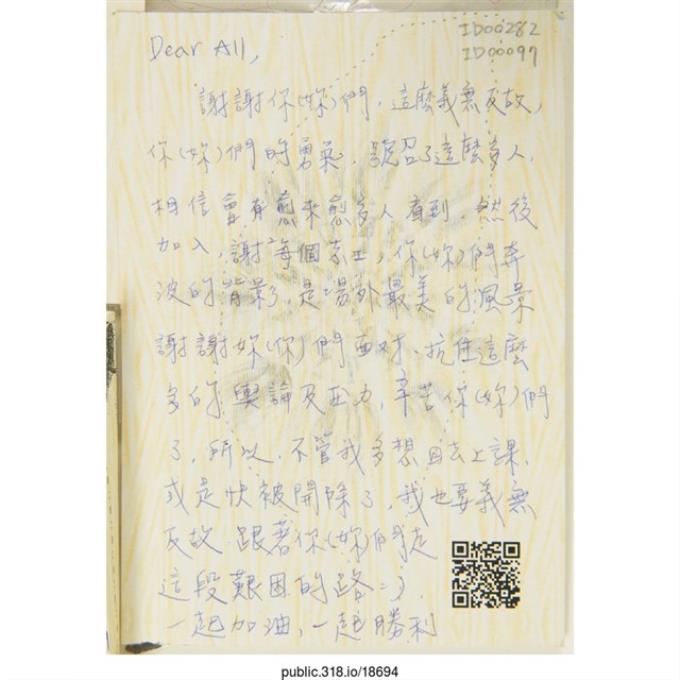 ID00282
ID00097
Dear All,
謝謝你(妳)們,這麼義無反故,
你(妳)們的勇氣,號召了這麼多人,
相信會有愈來愈多人看到,然後
加入,謝每個志工,你(妳)們奔
波的背影,是場外最美的風景
謝謝妳(你)們面對、抗住這麼
多的輿論及压力,辛苦你(妳)們
了,所以,不管我多想回去上課,
或是快被開除了,我也要義無
反故 跟著你(妳)們走
這段艱困的路=),
一起加油,一起勝利
public.318.io/18694